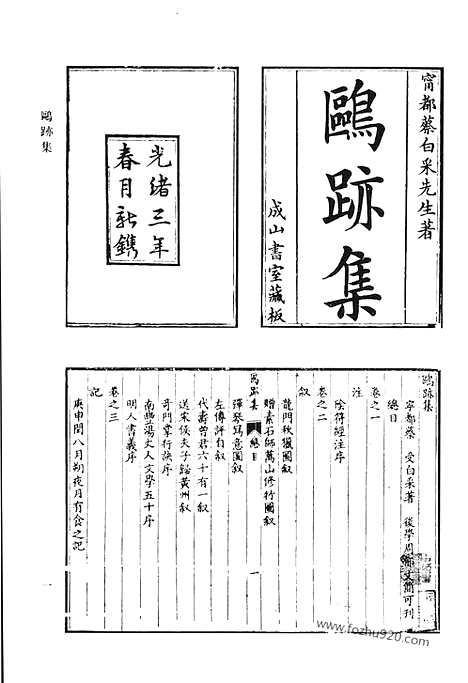 甯都蔡白采先生著
鷗跡集
成山書室藏板
光緒三年
春月新鐫
鷗跡集
鷗跡集
甯都蔡 受白采著 後學周
文蘭可刊
總目
卷之一
注
陰符經注序
卷之二
叙
龍門秋獵圖叙
贈素石師萬山修行圖叙
總目
一
彈琴寫意圖叙
左傳評自叙
代壽曾君六十有一叙
送宋俟夫子歸黃州叙
奇門掌行訣序
南豐湯史人文學五十序
明人書義序
卷之三
記
庚申閏八月朔夜月有食之記
一
www.fozhu920.com